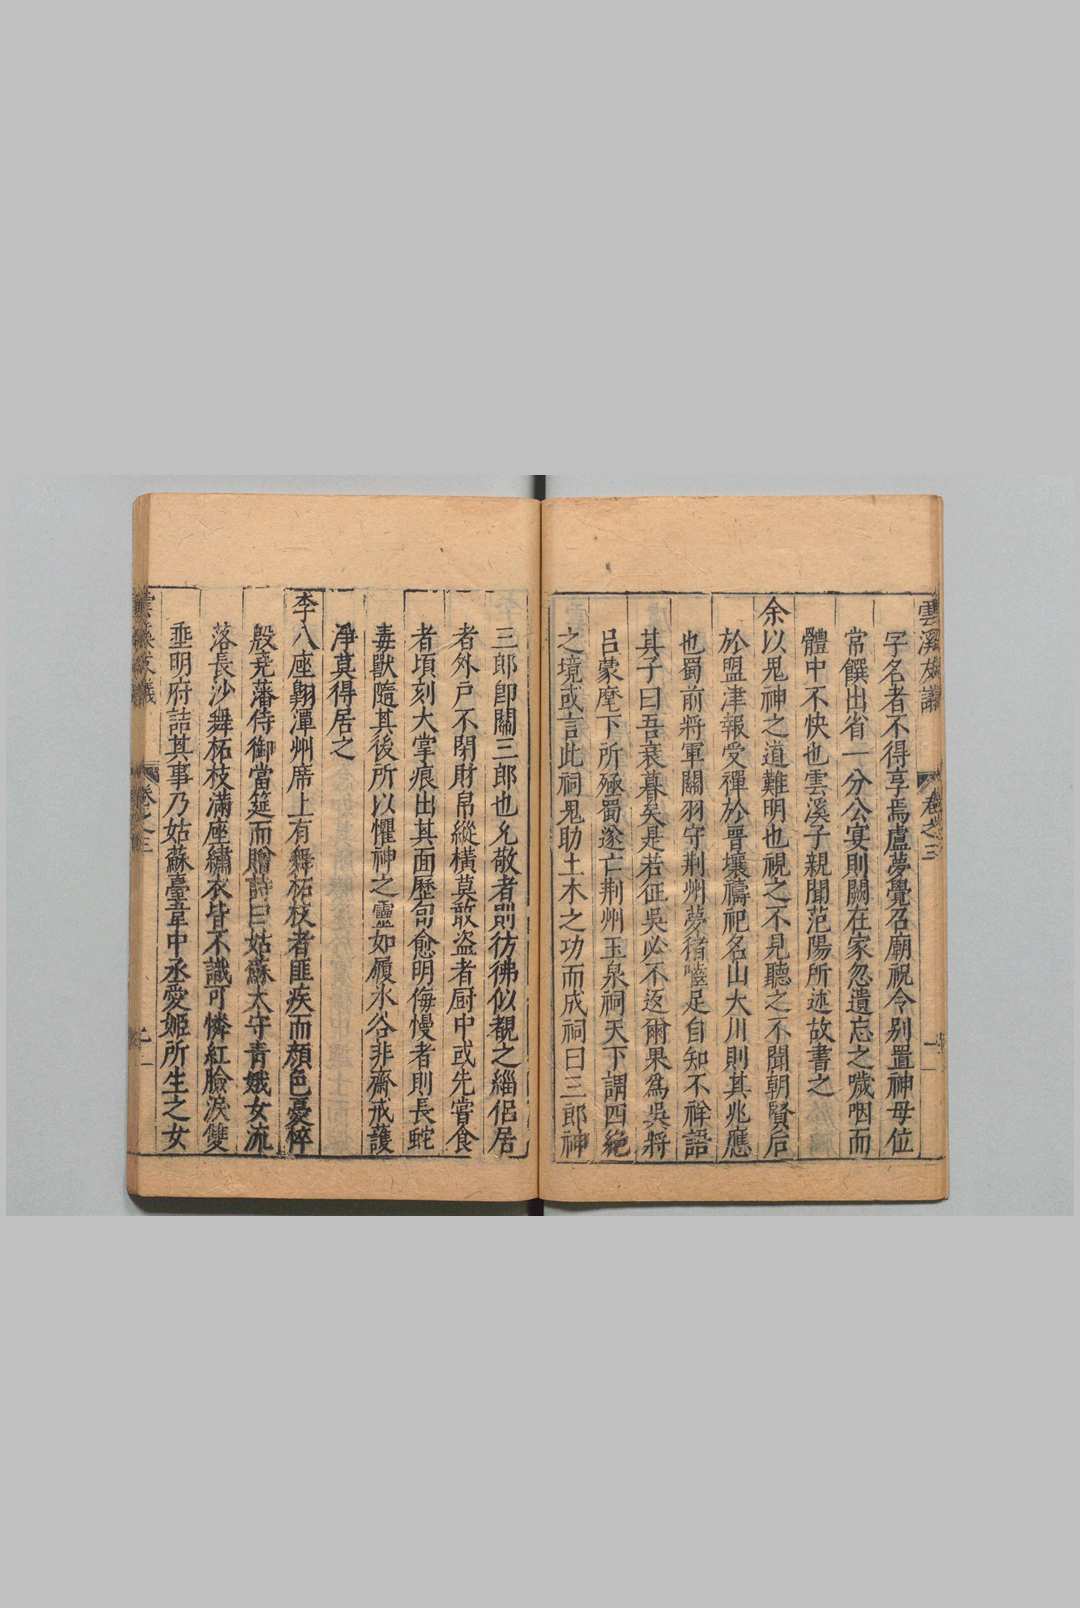 雲溪友議
卷之三
一
字名者不得享焉盧夢覺召廟祝令别置神母位
常饌出省一分公宴則闕在家忽遺忘之嘰咽而
體中不快也雲溪子親聞范陽所述故書之
余以鬼神之道難明也視之不見聽之不聞朝賢后
於盟津報受禪於晉壤禱祀名山大川則其兆應
也蜀前將軍關羽守荆州夢猪囓足自知不祥語
其子曰吾衰暮矣是若征吳必不返爾果爲吳將
吕蒙麾下所殛蜀遂亡荆州玉泉祠天下謂四絶
之境或言此祠鬼助土木之功而成祠曰三郎神
三郎卽關三郎也允敬者則彷彿似覩之緇侣居
者外戸不閉財帛縱横莫敢盗者厨中或先嘗食
者頃刻大掌痕出其面歷旬愈明侮慢者則長蛇
毒獸隨其後所以懼神之靈如履氷谷非齋戒護
淨莫得居之
李八座翺潭州席上有舞柘枝者匪疾而顔色憂悴
殷堯藩侍御當筵而贈詩曰姑蘇太守青娥女流
落長沙舞柘枝滿座繡衣皆不識可憐紅臉淚雙
垂明府詰其事乃姑蘇臺韋中丞愛姬所生之女
卷之三